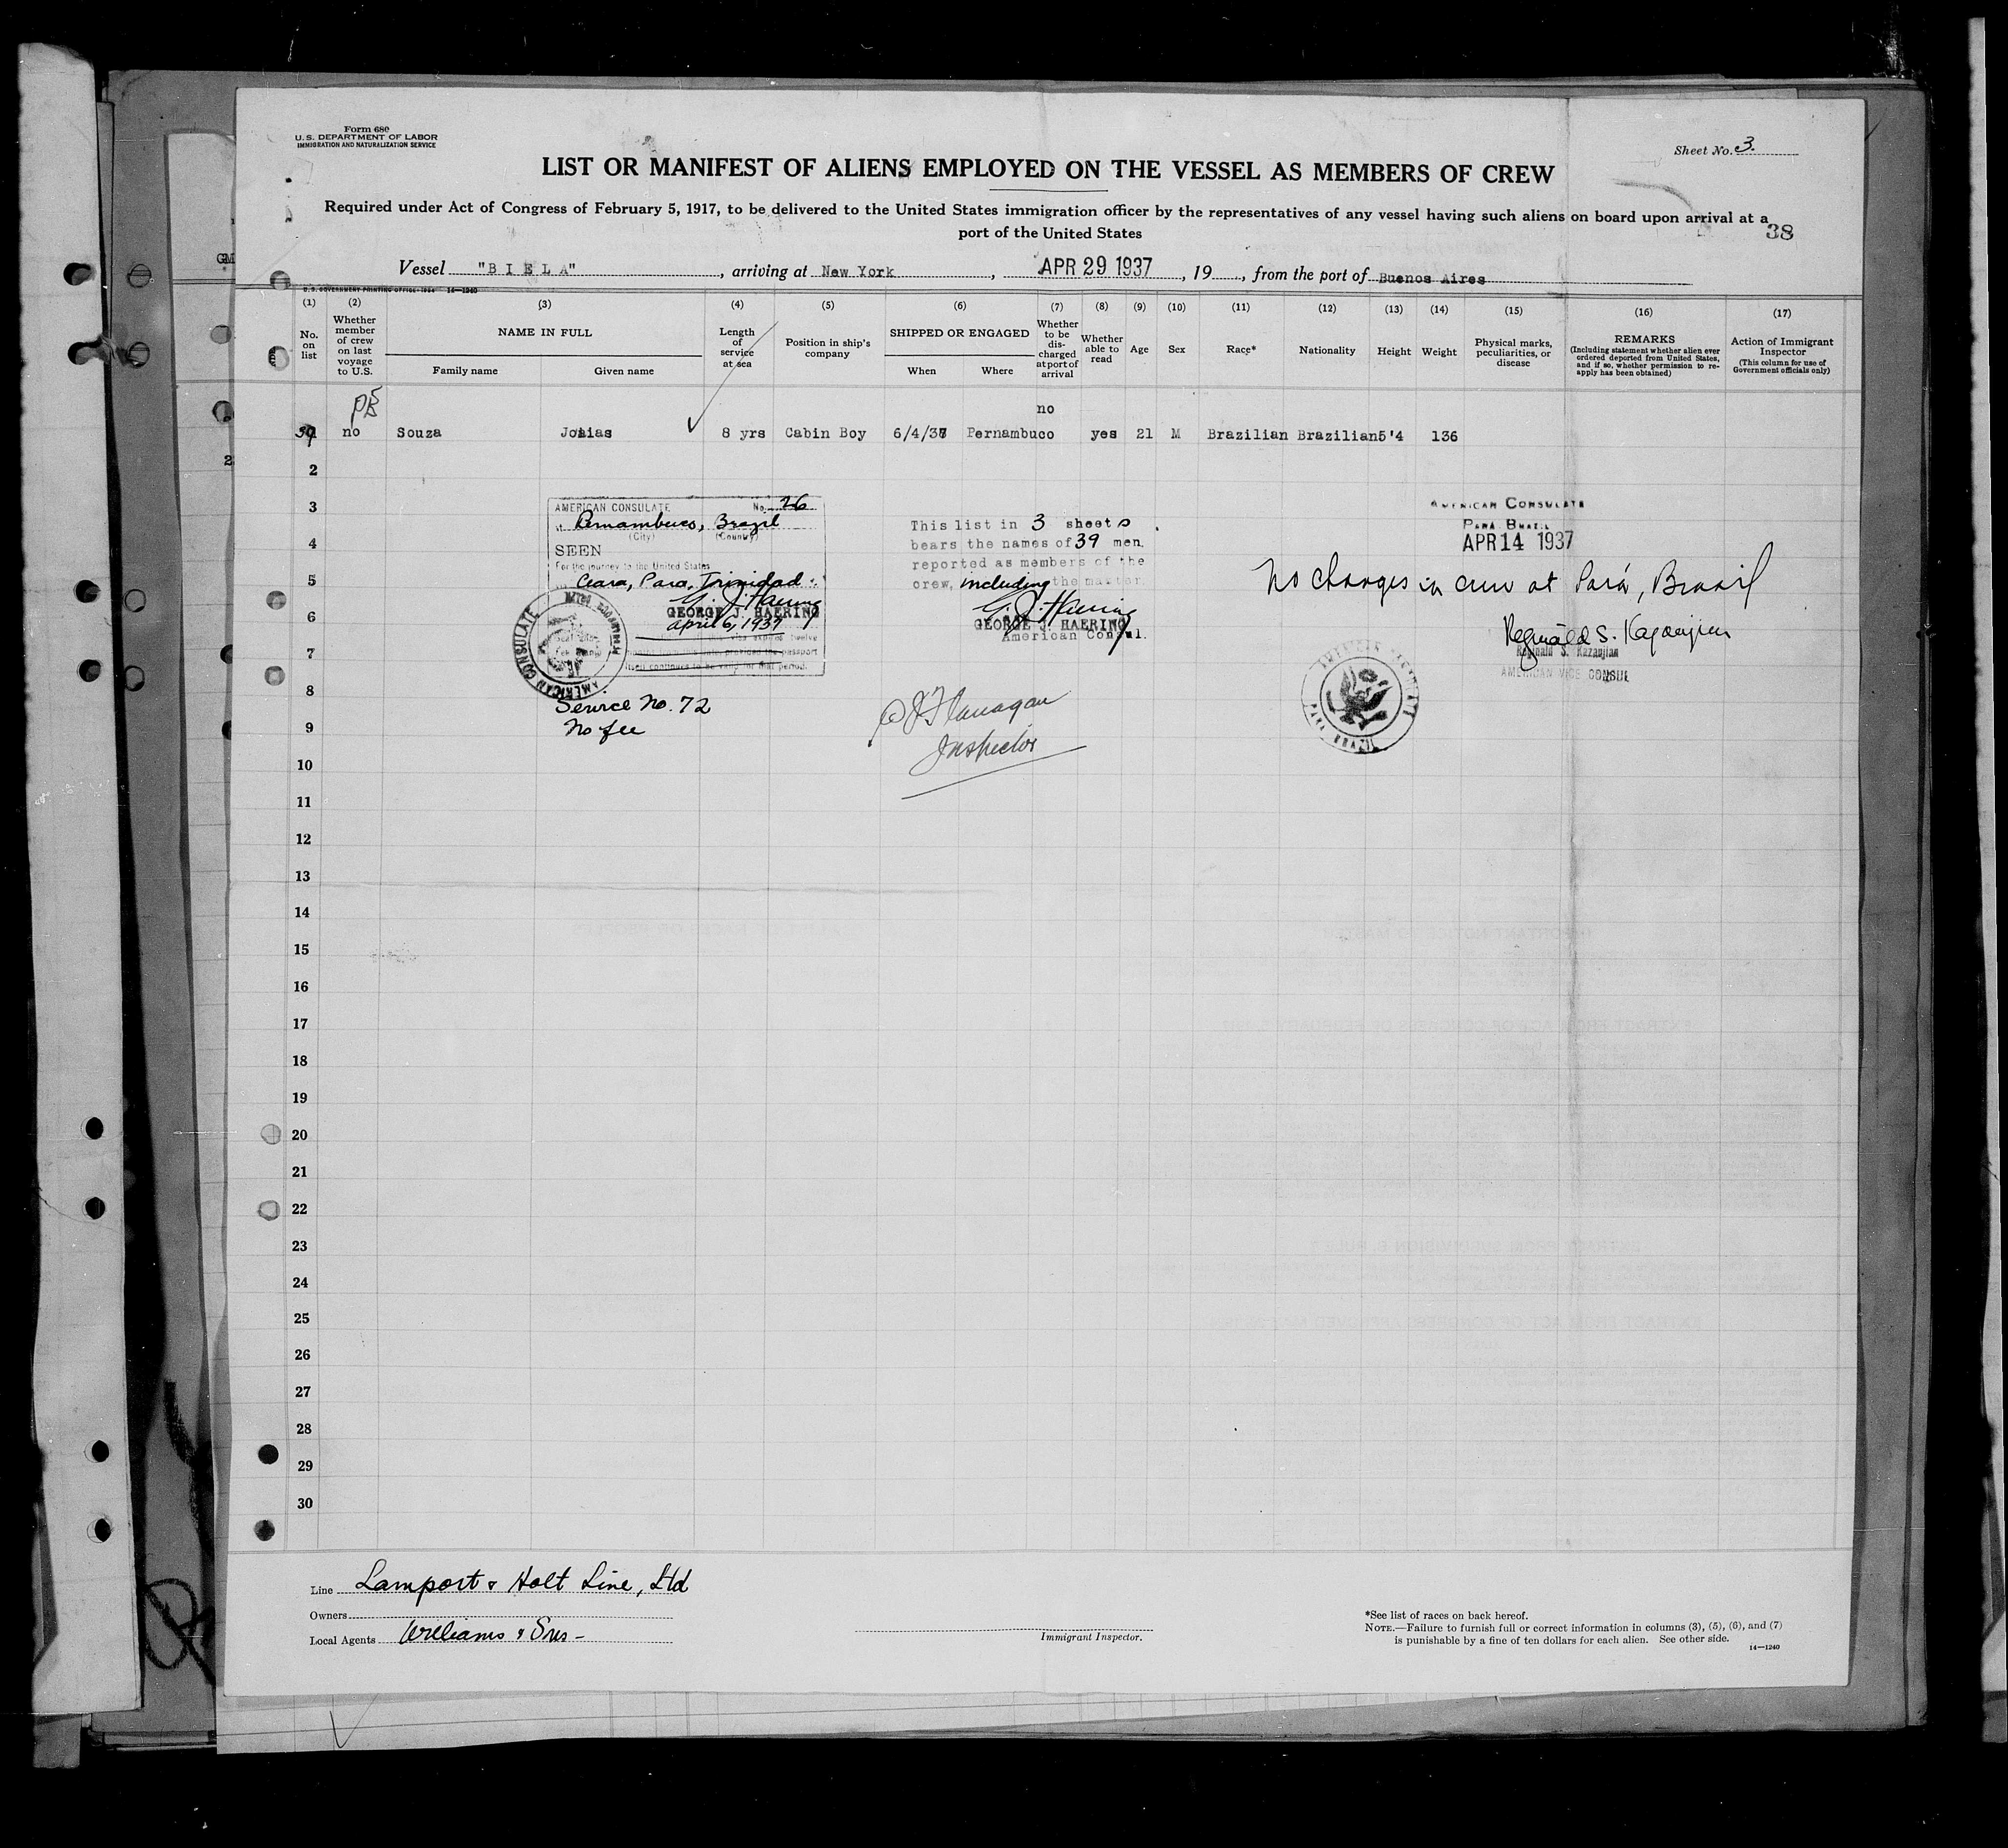 Form 680
U. S. DEPARTMENT OF LABOR
IMMIGRATION AND NATURALIZATION SERVICE
Sheet No. 3.
LIST OR MANIFEST OF ALIENS EMPLOYED ON THE VESSEL AS MEMBERS OF CREW
Required under Act of Congress of February 5, 1917, to be delivered to the United States immigration officer by the representatives of any vessel having such aliens on board upon arrival at a
port of the United States
38
Vessel "BIELA", arriving at New York, APR 29 1937, 19, from the port of Buenos Aires
U. S. GOVERNMENT PRINTING OFFICE: 1934 14—1240
(1) (2) (3) (4) (5) (6) (7) (8) (9) (10) (11) (12) (13) (14) (15) (16) (17)
No. on list
Whether member of crew on last voyage to U.S.
NAME IN FULL
Family name
Given name
Length of service at sea
Position in ship's company
SHIPPED OR ENGAGED
When
Where
Whether to be discharged at port of arrival
Whether able to read
Age
Sex
Race*
Nationality
Height
Weight
Physical marks, peculiarities, or disease
REMARKS
(Including statement whether alien ever ordered deported from United States, and if so, whether permission to reapply has been obtained)
Action of Immigrant Inspector
(This column for use of Government officials only)
no
39 no Souza 8 yrs Cabin Boy 6/4/37 Pernambuco yes 21 M Brazilian Brazilian 5'4 136
2
3
4
5
6
7
8
9
10
11
12
13
14
15
16
17
18
19
20
21
22
23
24
25
26
27
28
29
30
AMERICAN CONSULATE No. 26
Pernambuco, Brazil
(City) (Country)
SEEN
For the journey to the United States
Ceara, Para, Trinidad
G. J. Haering
GEORGE J. HAERING
April 6, 1937
AMERICAN CONSULATE
Service No. 72
No fee
This list in 3 sheets
bears the names of 39 men.
reported as members of the
crew, including the master.
G. J. Haering
GEORGE J. HAERING
American Consul.
Flanagan
Inspector
AMERICAN CONSULATE
PARÁ BRAZIL
APR 14 1937
No changes in crew at Pará, Brazil
Reginald S. Kazanjian
Reginald S. Kazanjian
AMERICAN VICE CONSUL
PARA BRAZIL
Line Lamport & Holt Line, Ltd
Owners
Local Agents Williams &
Immigrant Inspector.
*See list of races on back hereof.
NOTE.—Failure to furnish full or correct information in columns (3), (5), (6), and (7)
is punishable by a fine of ten dollars for each alien. See other side.
14—1240